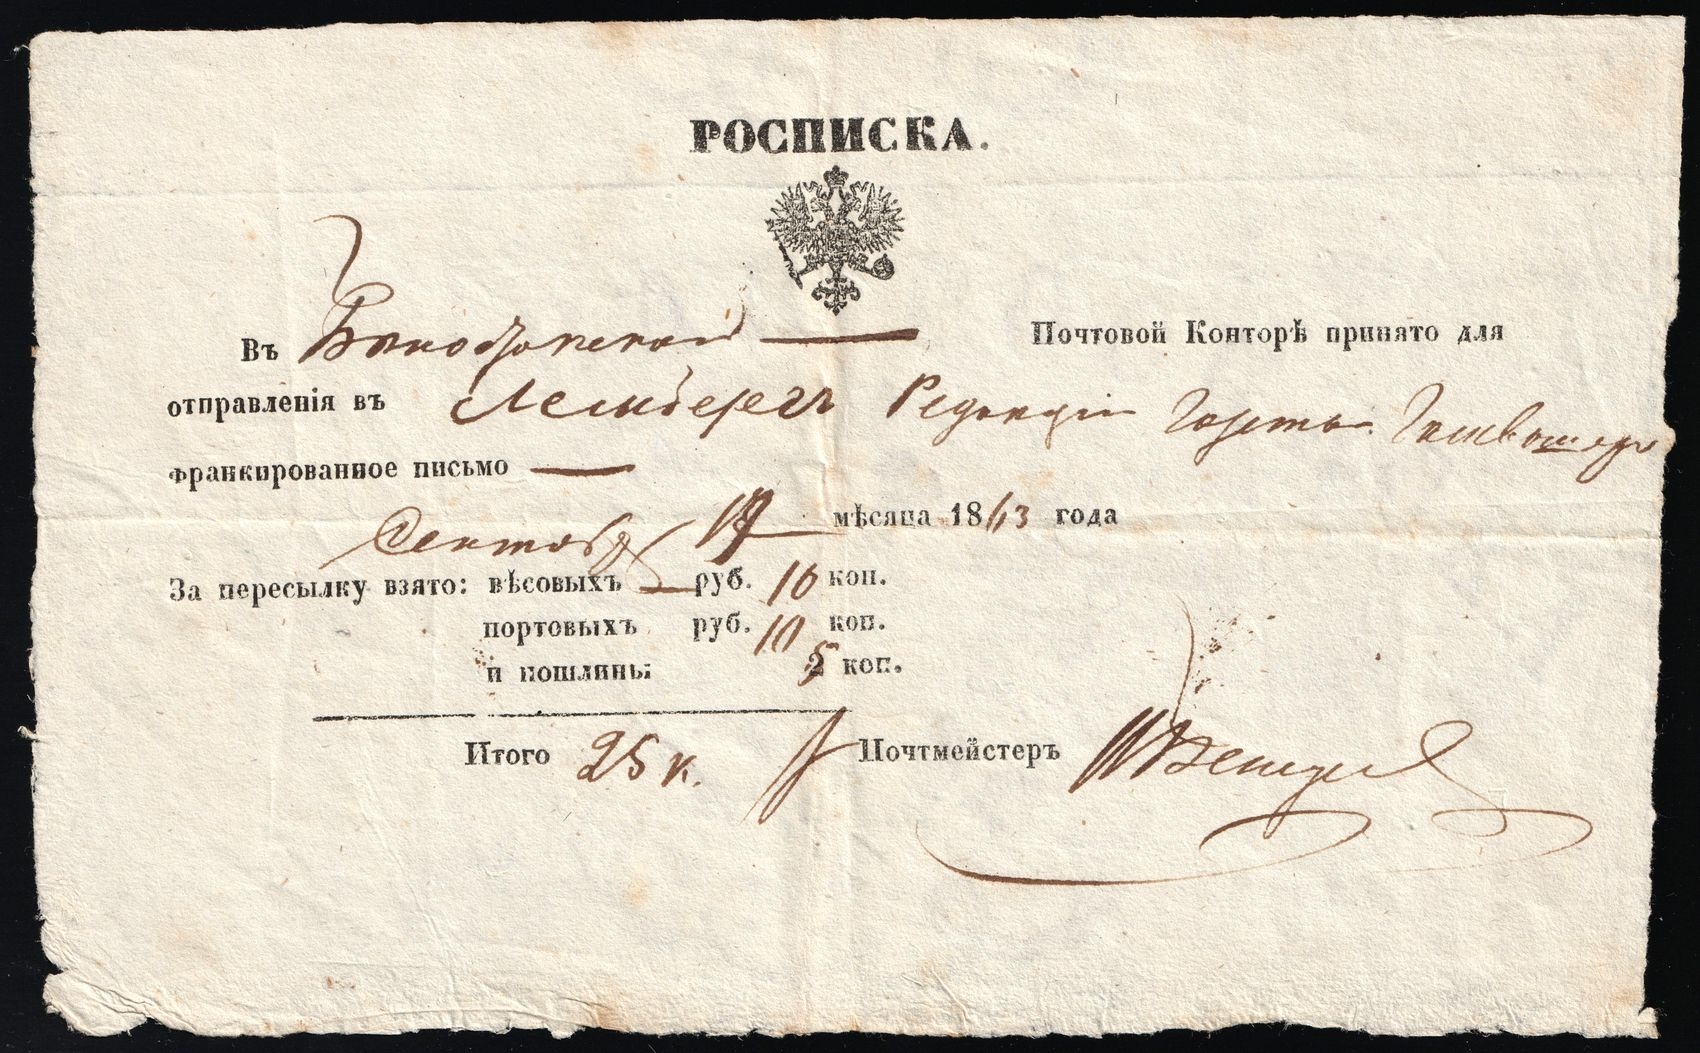 РОСПИСКА.
Въ Почтовой Конторѣ принято для
отправленія въ Лембергъ Редакціи Газеты
франкированное письмо
Сентября 17 мѣсяца 1863 года
За пересылку взято: вѣсовыхъ руб. 10 коп.
портовыхъ руб. 10 коп.
и пошлины 5 коп.
Итого 25 к. Почтмейстеръ